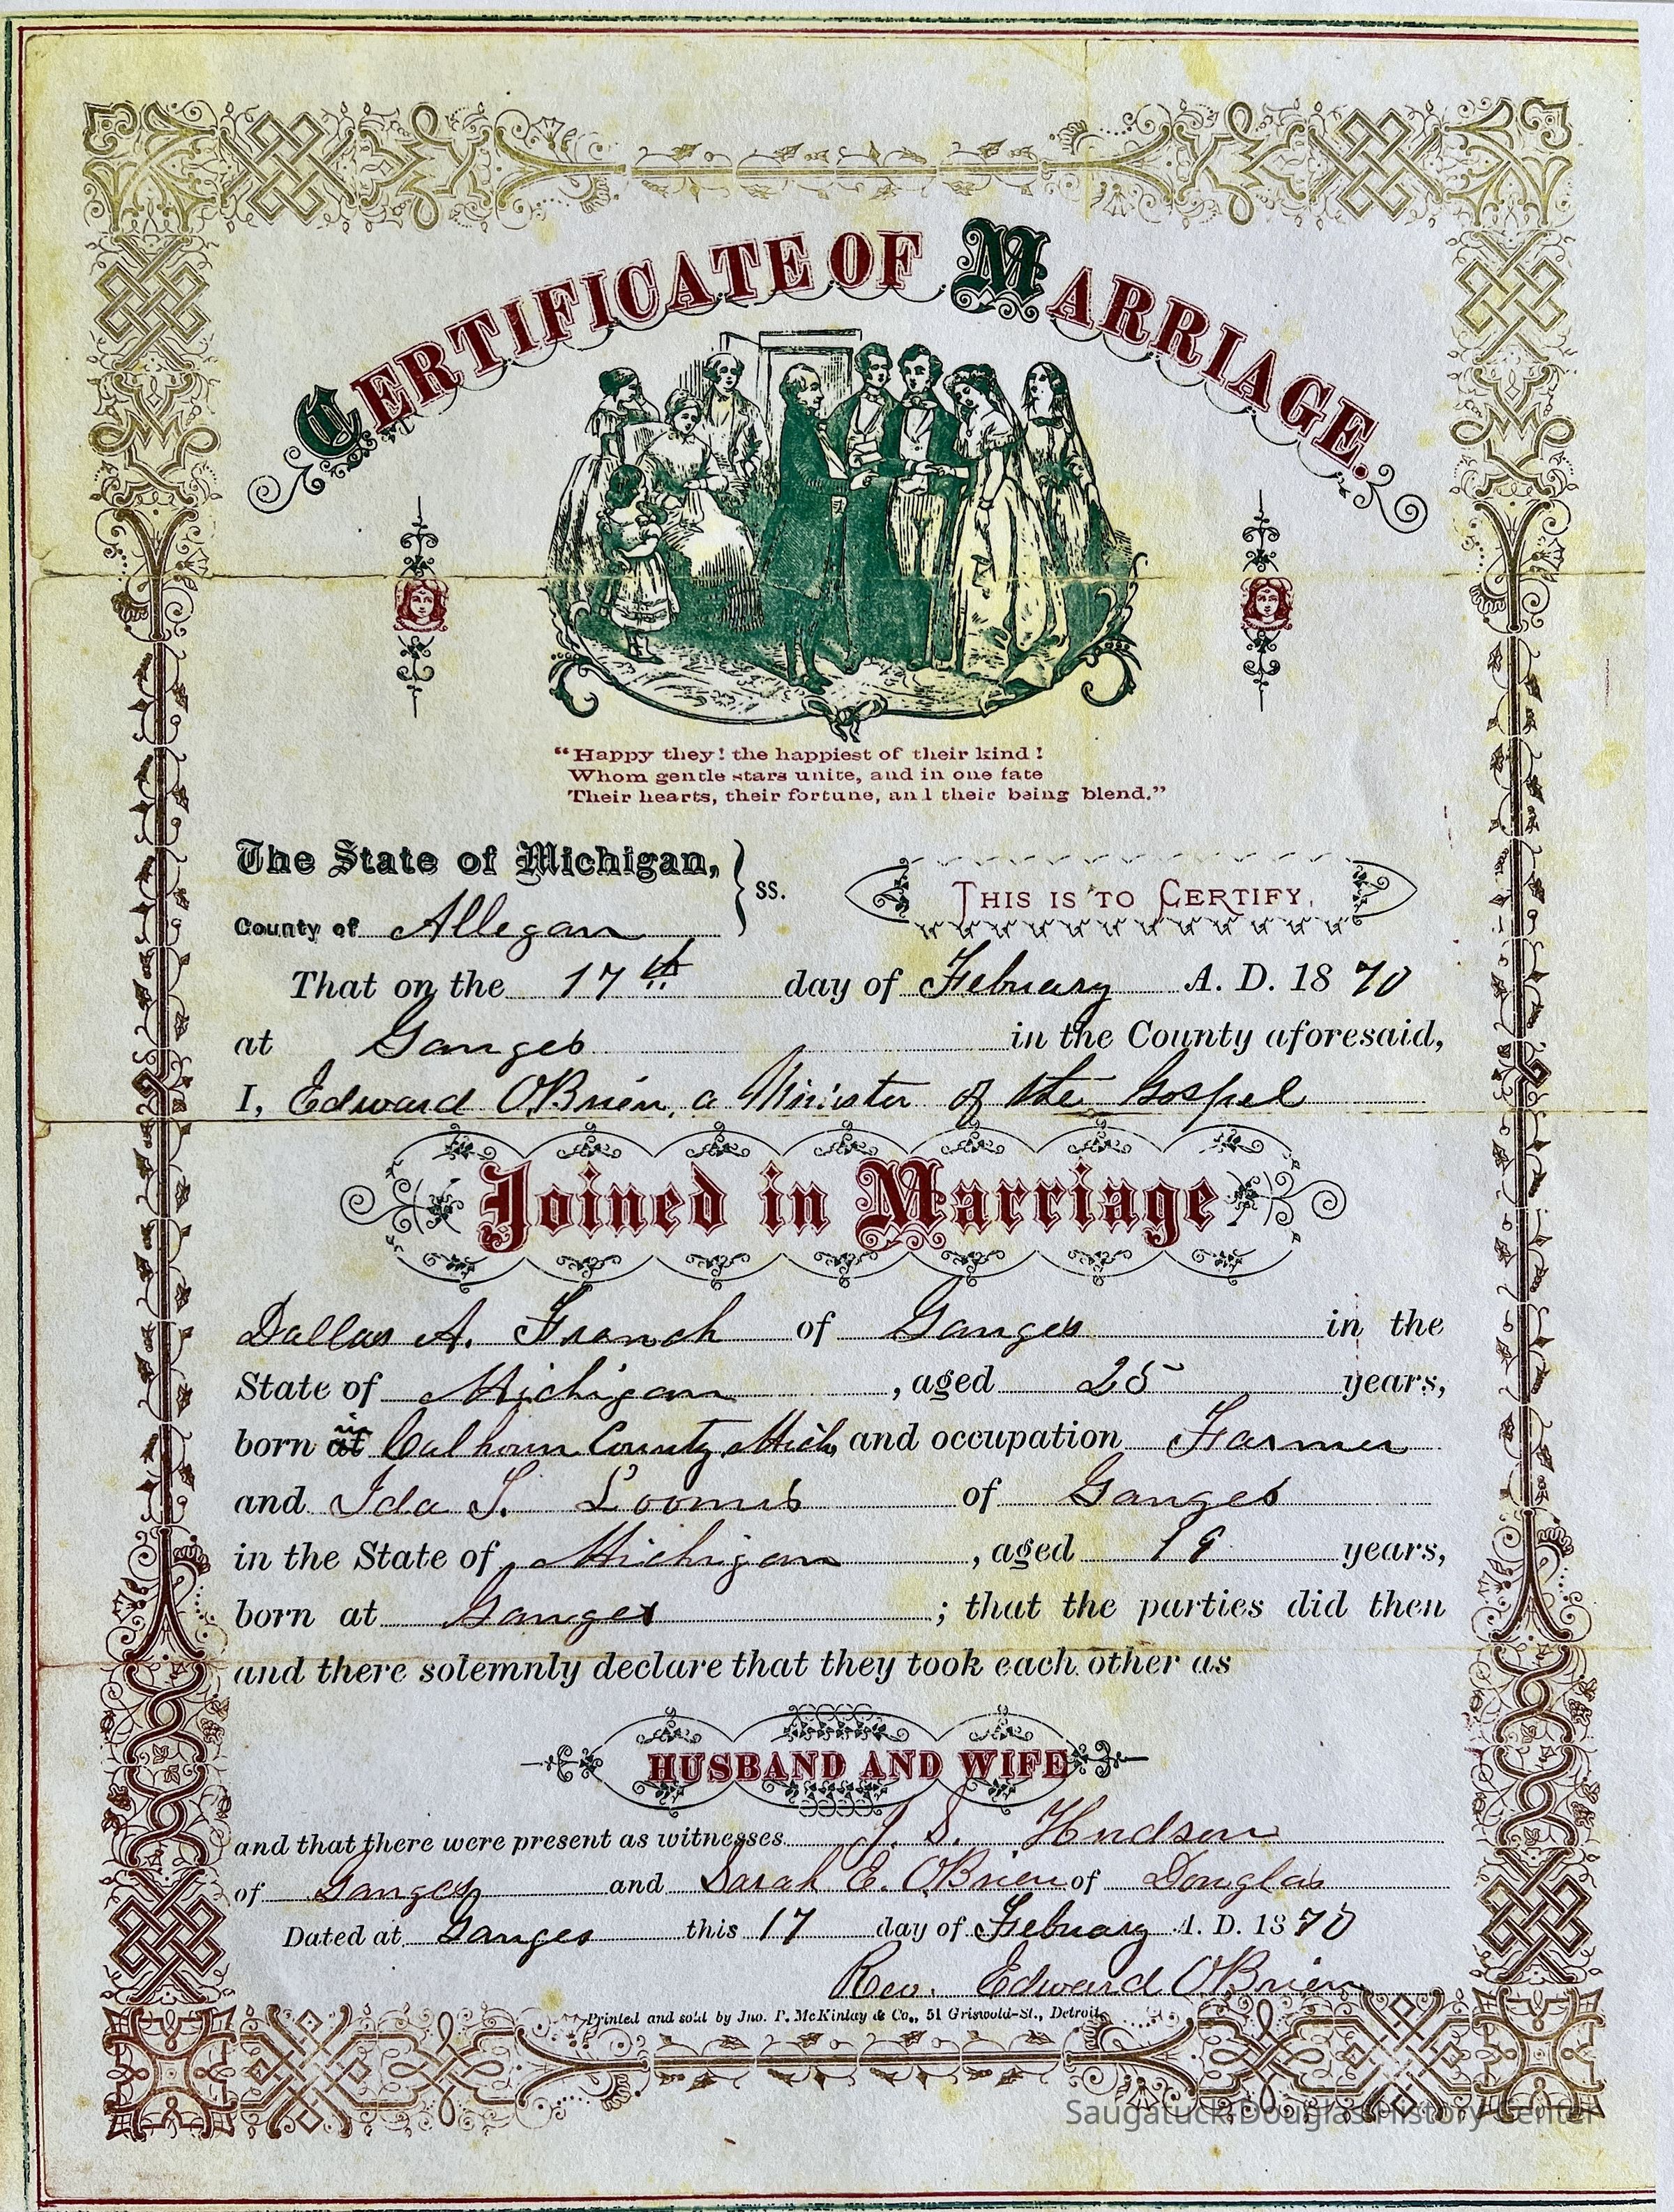 CERTIFICATE OF MARRIAGE.
“Happy they! the happiest of their kind!
Whom gentle stars unite, and in one fate
Their hearts, their fortune, and their being blend.”
The State of Michigan,
County of Allegan } ss.
THIS IS TO CERTIFY,
That on the 17th day of Febuary A. D. 18 70
at Ganges in the County aforesaid,
I, Edward OBrien, a Minister of the Gospel
Joined in Marriage
Dallas A. French of Ganges in the
State of Michigan, aged 25 years,
born in Calhoun County Mich, and occupation Farmer
and Ida Loomis of Ganges
in the State of Michigan, aged years,
born at Ganges; that the parties did then
and there solemnly declare that they took each other as
HUSBAND AND WIFE
and that there were present as witnesses S. Hudson
of Ganges and Sarah E. OBrien of Douglas
Dated at Ganges this 17 day of Febuary A. D. 18 70
Rev. Edward OBrien
Printed and sold by Jno. P. McKinlay & Co., 51 Griswold-St., Detroit.
Saugatuck Douglas History Center